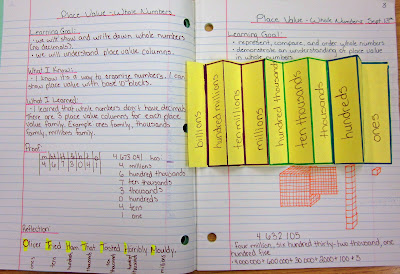 Place Value - Whole Numbers
Learning Goal:
- we will show and write down whole numbers
(no decimals)
- we will understand place value columns.
What I Know:
- I know it's a way to organize numbers. I can
show place value with base 10 blocks.
What I Learned:
- I learned that whole numbers don't have decimals.
There are 3 place value columns for each place
value family. Example ones family, thousands
family, millions family.
Proof:
m ht tt t h t o
4 6 7 3 0 4 1
4 673 041 has
4 millions
6 hundred thousands
7 ten thousands
3 thousands
0 hundreds
4 tens
1 one
Reflection
Oliver Tried Ham That Tasted Horribly Mouldy.
ones
tens
hundreds
thousands
millions
3
Place Value - Whole Numbers Sept 13th
Learning Goals:
- represent, compare, and order whole numbers
- demonstrate an understanding of place value
in whole numbers
billions
hundred millions
ten millions
millions
hundred thousands
ten thousands
thousands
hundreds
ones
4 632 105
four million, six hundred thirty-two thousand, one
hundred five
4 000 000 + 600 000 + 30 000 + 2000 + 100 + 5